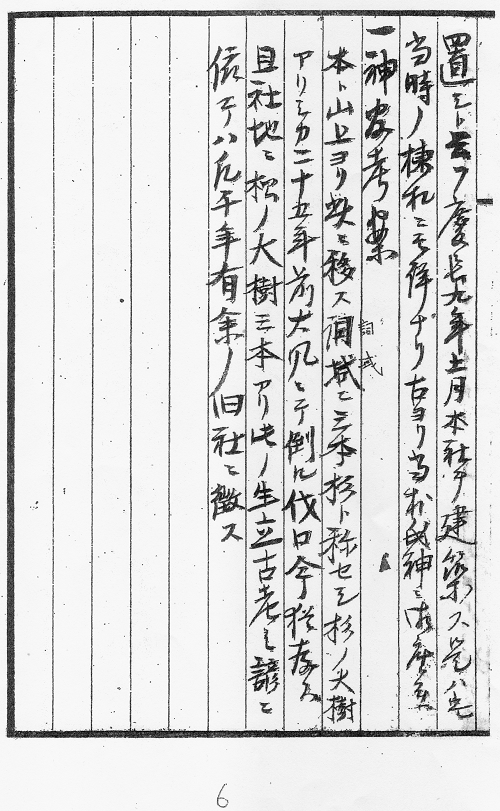 置シト云フ慶長九年十一月本社ヲ建築ス是ハ
当時ノ棟札ニモ詳ナリ古ヨリ当村氏神ニ御座
一神家考案
本ト山上ヨリ此ニ移ス旧域ニ三本杉ト称セシ杉ノ大樹
詞或
アリシカ二十五年前大風ニテ倒ル伐口今猶存ス
且社地ニ松ノ大樹三本アリ此ノ生立古老ノ諺ニ
依テハ凡千年有余ノ旧社ニ徴ス
6